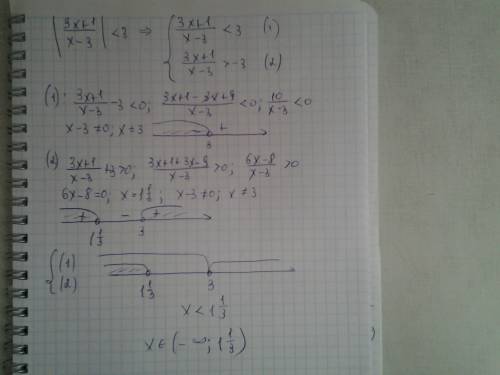 |(3x+1)/(x-3)| < 3 ⇒ { (3x+1)/(x-3) < 3 (1)
(3x+1)/(x-3) > -3 (2)
(1): (3x+1)/(x-3) - 3 < 0; (3x+1-3x+9)/(x-3) < 0; 10/(x-3) < 0
x-3≠0; x≠3
- +
3
(2) (3x+1)/(x-3) + 3 > 0; (3x+1+3x-9)/(x-3) > 0; (6x-8)/(x-3) > 0
6x-8=0; x=1 1/3; x-3≠0; x≠3
+ - +
1 1/3 3
{ (1)
(2)
1 1/3 3
x < 1 1/3
x ∈ (-∞; 1 1/3)